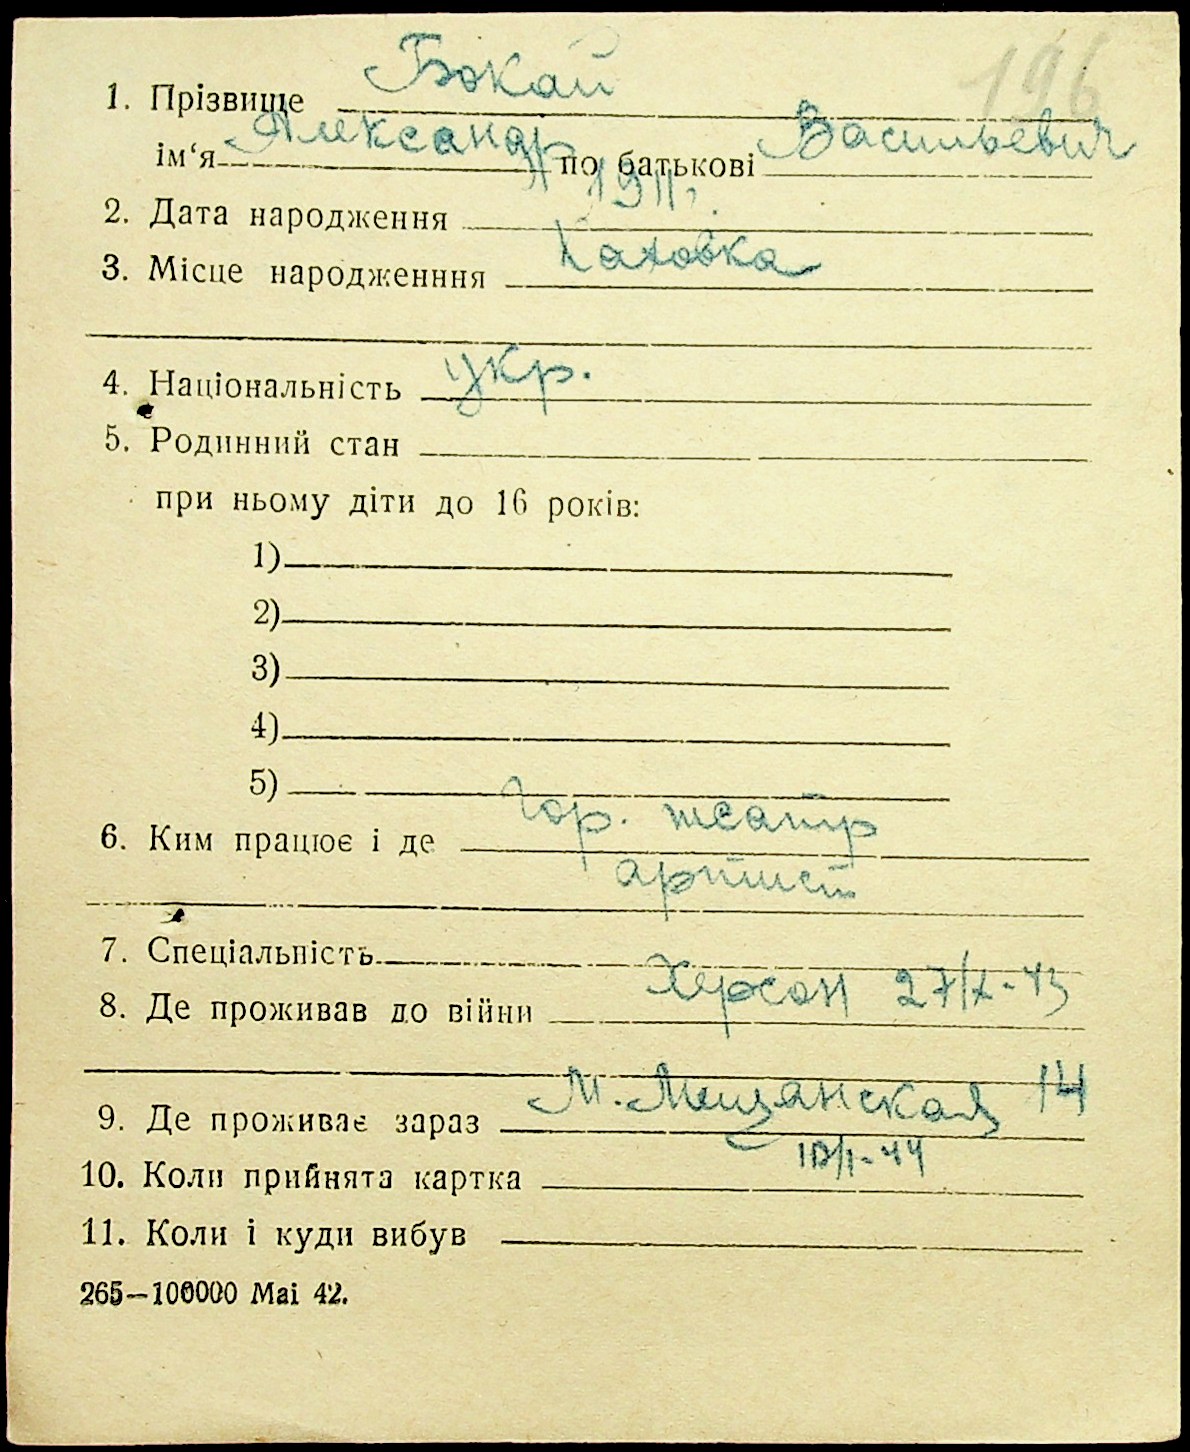 196
1. Прізвище Бокай
ім‘я Александр по батькові Васильевич
2. Дата народження 1911.
3. Місце народженння Каховка
4. Національність укр.
5. Родинний стан
при ньому діти до 16 років:
1)
2)
3)
4)
5)
6. Ким працює і де Гор. театр
артист
7. Спеціальність
8. Де проживав до війни Херсон 27/X-43
9. Де проживає зараз М. Мещанская 14
10. Коли прийнята картка 10/I-44
11. Коли і куди вибув
265—100000 Mai 42.